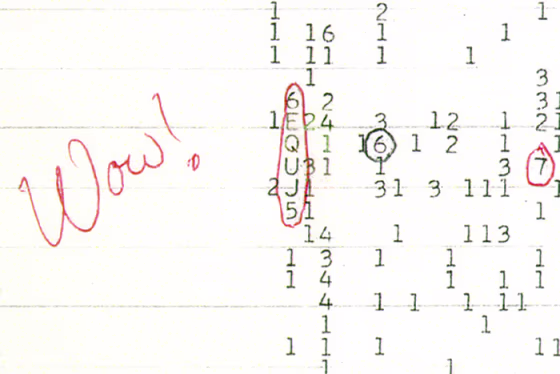 1 2 1
1 16 1 1
1 11 1 1
1 3
6 2 31
1 E 24 3 12 1 21
Q 1 16 1 2 1 1
U 31 1 3 7
2 J 1 31 3 111 1
5 1 1
14 1 113
1 3 1 1 1
1 4 1 1 1
4 1 1 1 11
1 1
1 1 1 11
1 1
Wow!